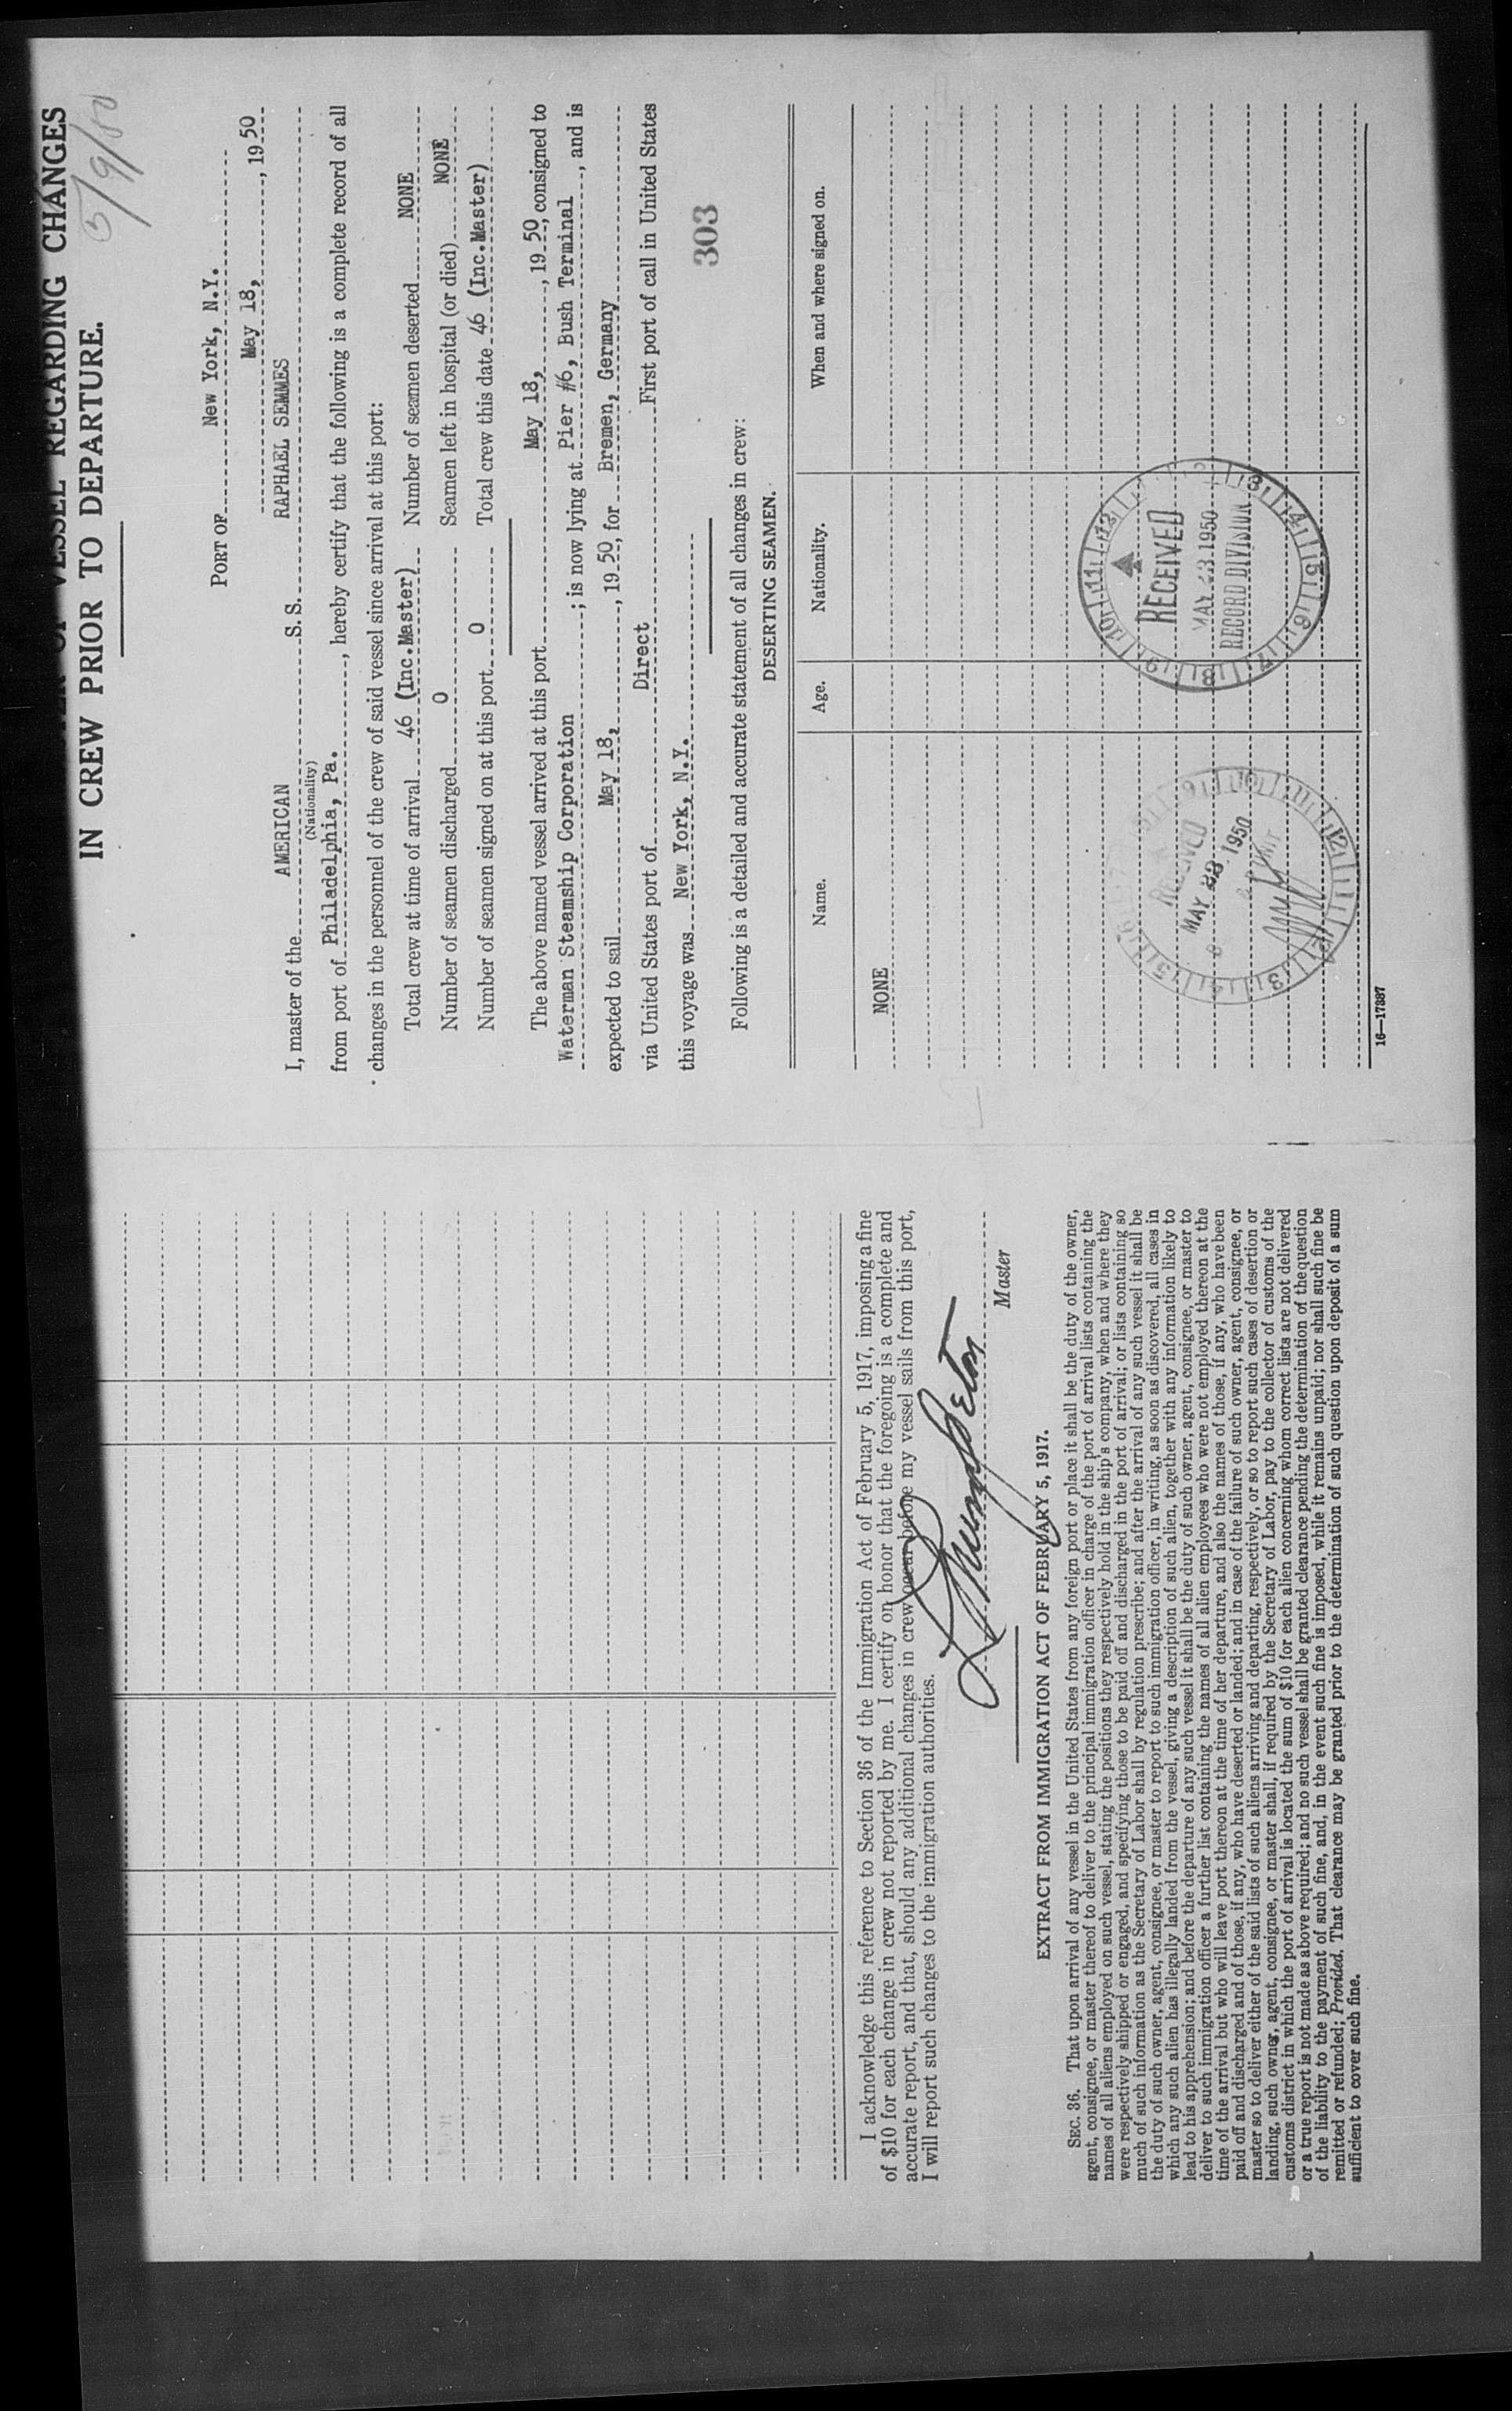 OF VESSEL REGARDING CHANGES
IN CREW PRIOR TO DEPARTURE.
5/9/50
PORT OF New York, N.Y.
May 18, , 19 50
I, master of the AMERICAN S. S. RAPHAEL SEMMES
(Nationality)
from port of Philadelphia, Pa. , hereby certify that the following is a complete record of all
changes in the personnel of the crew of said vessel since arrival at this port:
Total crew at time of arrival 46 (Inc.Master) Number of seamen deserted NONE
Number of seamen discharged 0 Seamen left in hospital (or died) NONE
Number of seamen signed on at this port 0 Total crew this date 46 (Inc.Master)
The above named vessel arrived at this port May 18, , 19 50, consigned to
Waterman Steamship Corporation ; is now lying at Pier #6, Bush Terminal , and is
expected to sail May 18, , 19 50, for Bremen, Germany
via United States port of Direct First port of call in United States
this voyage was New York, N.Y.
303
Following is a detailed and accurate statement of all changes in crew:
DESERTING SEAMEN.
Name. Age. Nationality. When and where signed on.
NONE
RECEIVED
MAY 23 1950
RECORD DIVISION
RECEIVED
MAY 23 1950
16—17387
I acknowledge this reference to Section 36 of the Immigration Act of February 5, 1917, imposing a fine
of $10 for each change in crew not reported by me. I certify on honor that the foregoing is a complete and
accurate report, and that, should any additional changes in crew occur before my vessel sails from this port,
I will report such changes to the immigration authorities.
Master
EXTRACT FROM IMMIGRATION ACT OF FEBRUARY 5, 1917.
SEC. 36. That upon arrival of any vessel in the United States from any foreign port or place it shall be the duty of the owner,
agent, consignee, or master thereof to deliver to the principal immigration officer in charge of the port of arrival lists containing the
names of all aliens employed on such vessel, stating the positions they respectively hold in the ship's company, when and where they
were respectively shipped or engaged, and specifying those to be paid off and discharged in the port of arrival; or lists containing so
much of such information as the Secretary of Labor shall by regulation prescribe; and after the arrival of any such vessel it shall be
the duty of such owner, agent, consignee, or master to report to such immigration officer, in writing, as soon as discovered, all cases in
which any such alien has illegally landed from the vessel, giving a description of such alien, together with any information likely to
lead to his apprehension; and before the departure of any such vessel it shall be the duty of such owner, agent, consignee, or master to
deliver to such immigration officer a further list containing the names of all alien employees who were not employed thereon at the
time of the arrival but who will leave port thereon at the time of her departure, and also the names of those, if any, who have been
paid off and discharged and of those, if any, who have deserted or landed; and in case of the failure of such owner, agent, consignee, or
master so to deliver either of the said lists of such aliens arriving and departing, respectively, or so to report such cases of desertion or
landing, such owner, agent, consignee, or master shall, if required by the Secretary of Labor, pay to the collector of customs of the
customs district in which the port of arrival is located the sum of $10 for each alien concerning whom correct lists are not delivered
or a true report is not made as above required; and no such vessel shall be granted clearance pending the determination of the question
of the liability to the payment of such fine, and, in the event such fine is imposed, while it remains unpaid; nor shall such fine be
remitted or refunded; Provided, That clearance may be granted prior to the determination of such question upon deposit of a sum
sufficient to cover such fine.